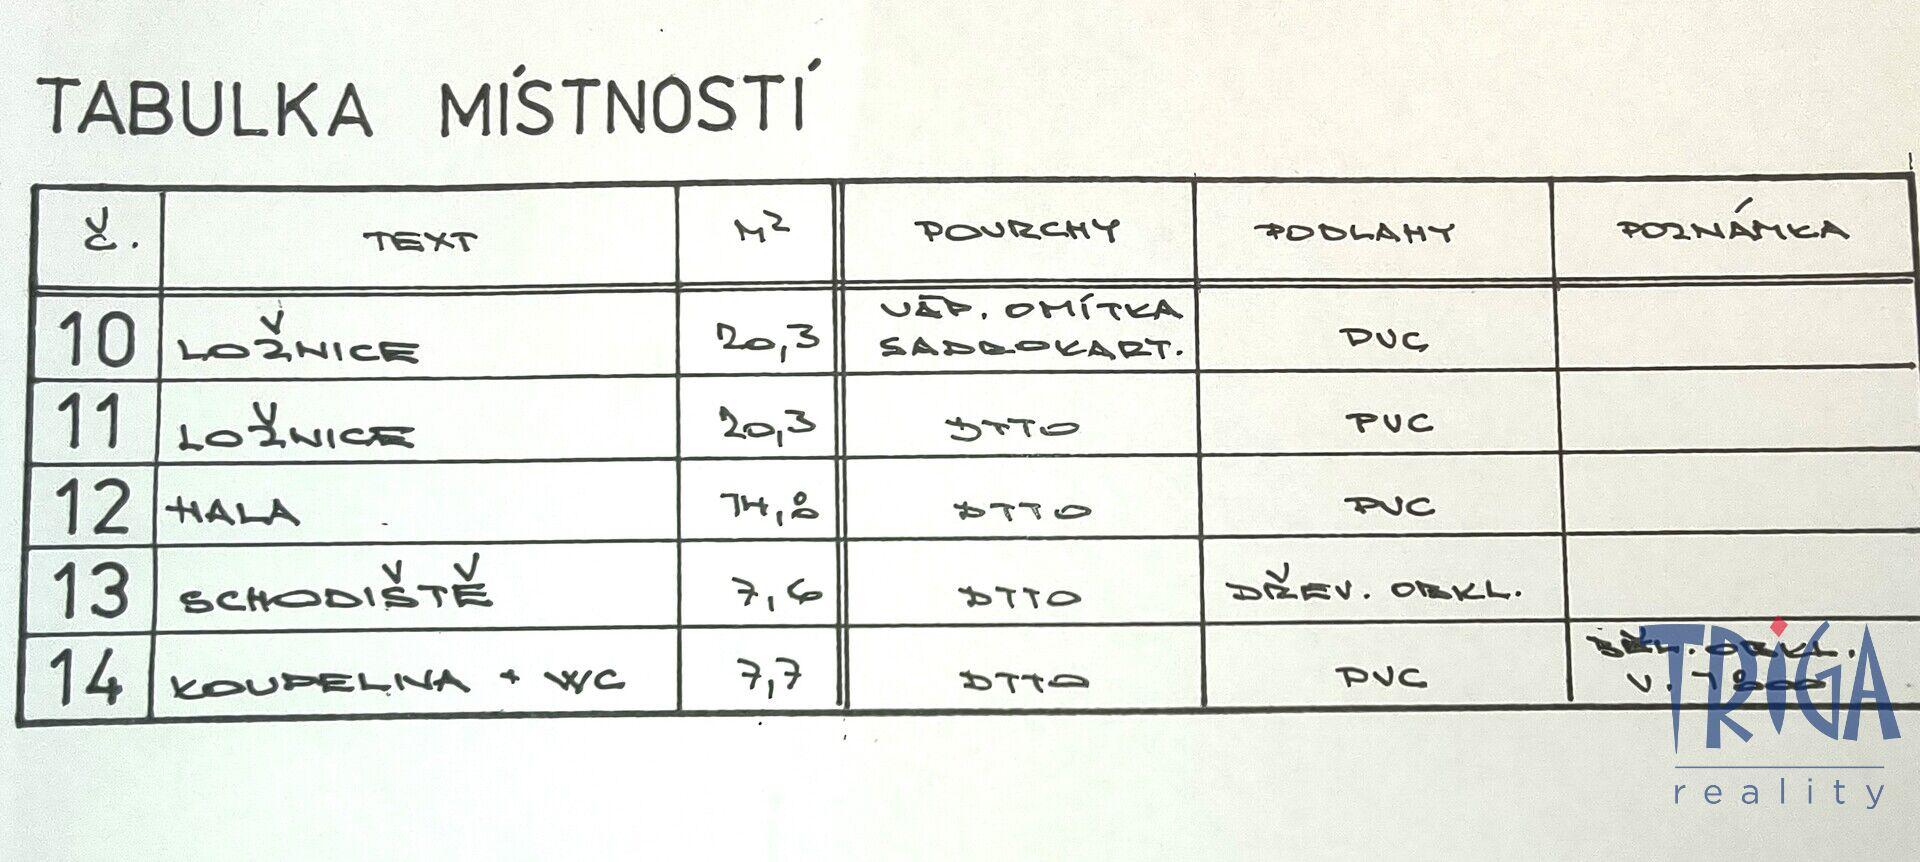 TABULKA MÍSTNOSTÍ
Č. TEXT M² POVRCHY PODLAHY POZNÁMKA
10 LOŽNICE 20,3 VÁP. OMÍTKA SÁDROKART. PVC
11 LOŽNICE 20,3 DTTO PVC
12 HALA 14,8 DTTO PVC
13 SCHODIŠTĚ 7,6 DTTO DŘEV. OBKL.
14 KOUPELNA + WC 7,7 DTTO PVC BĚL. OBKL. V. 1800
TRIGA
reality